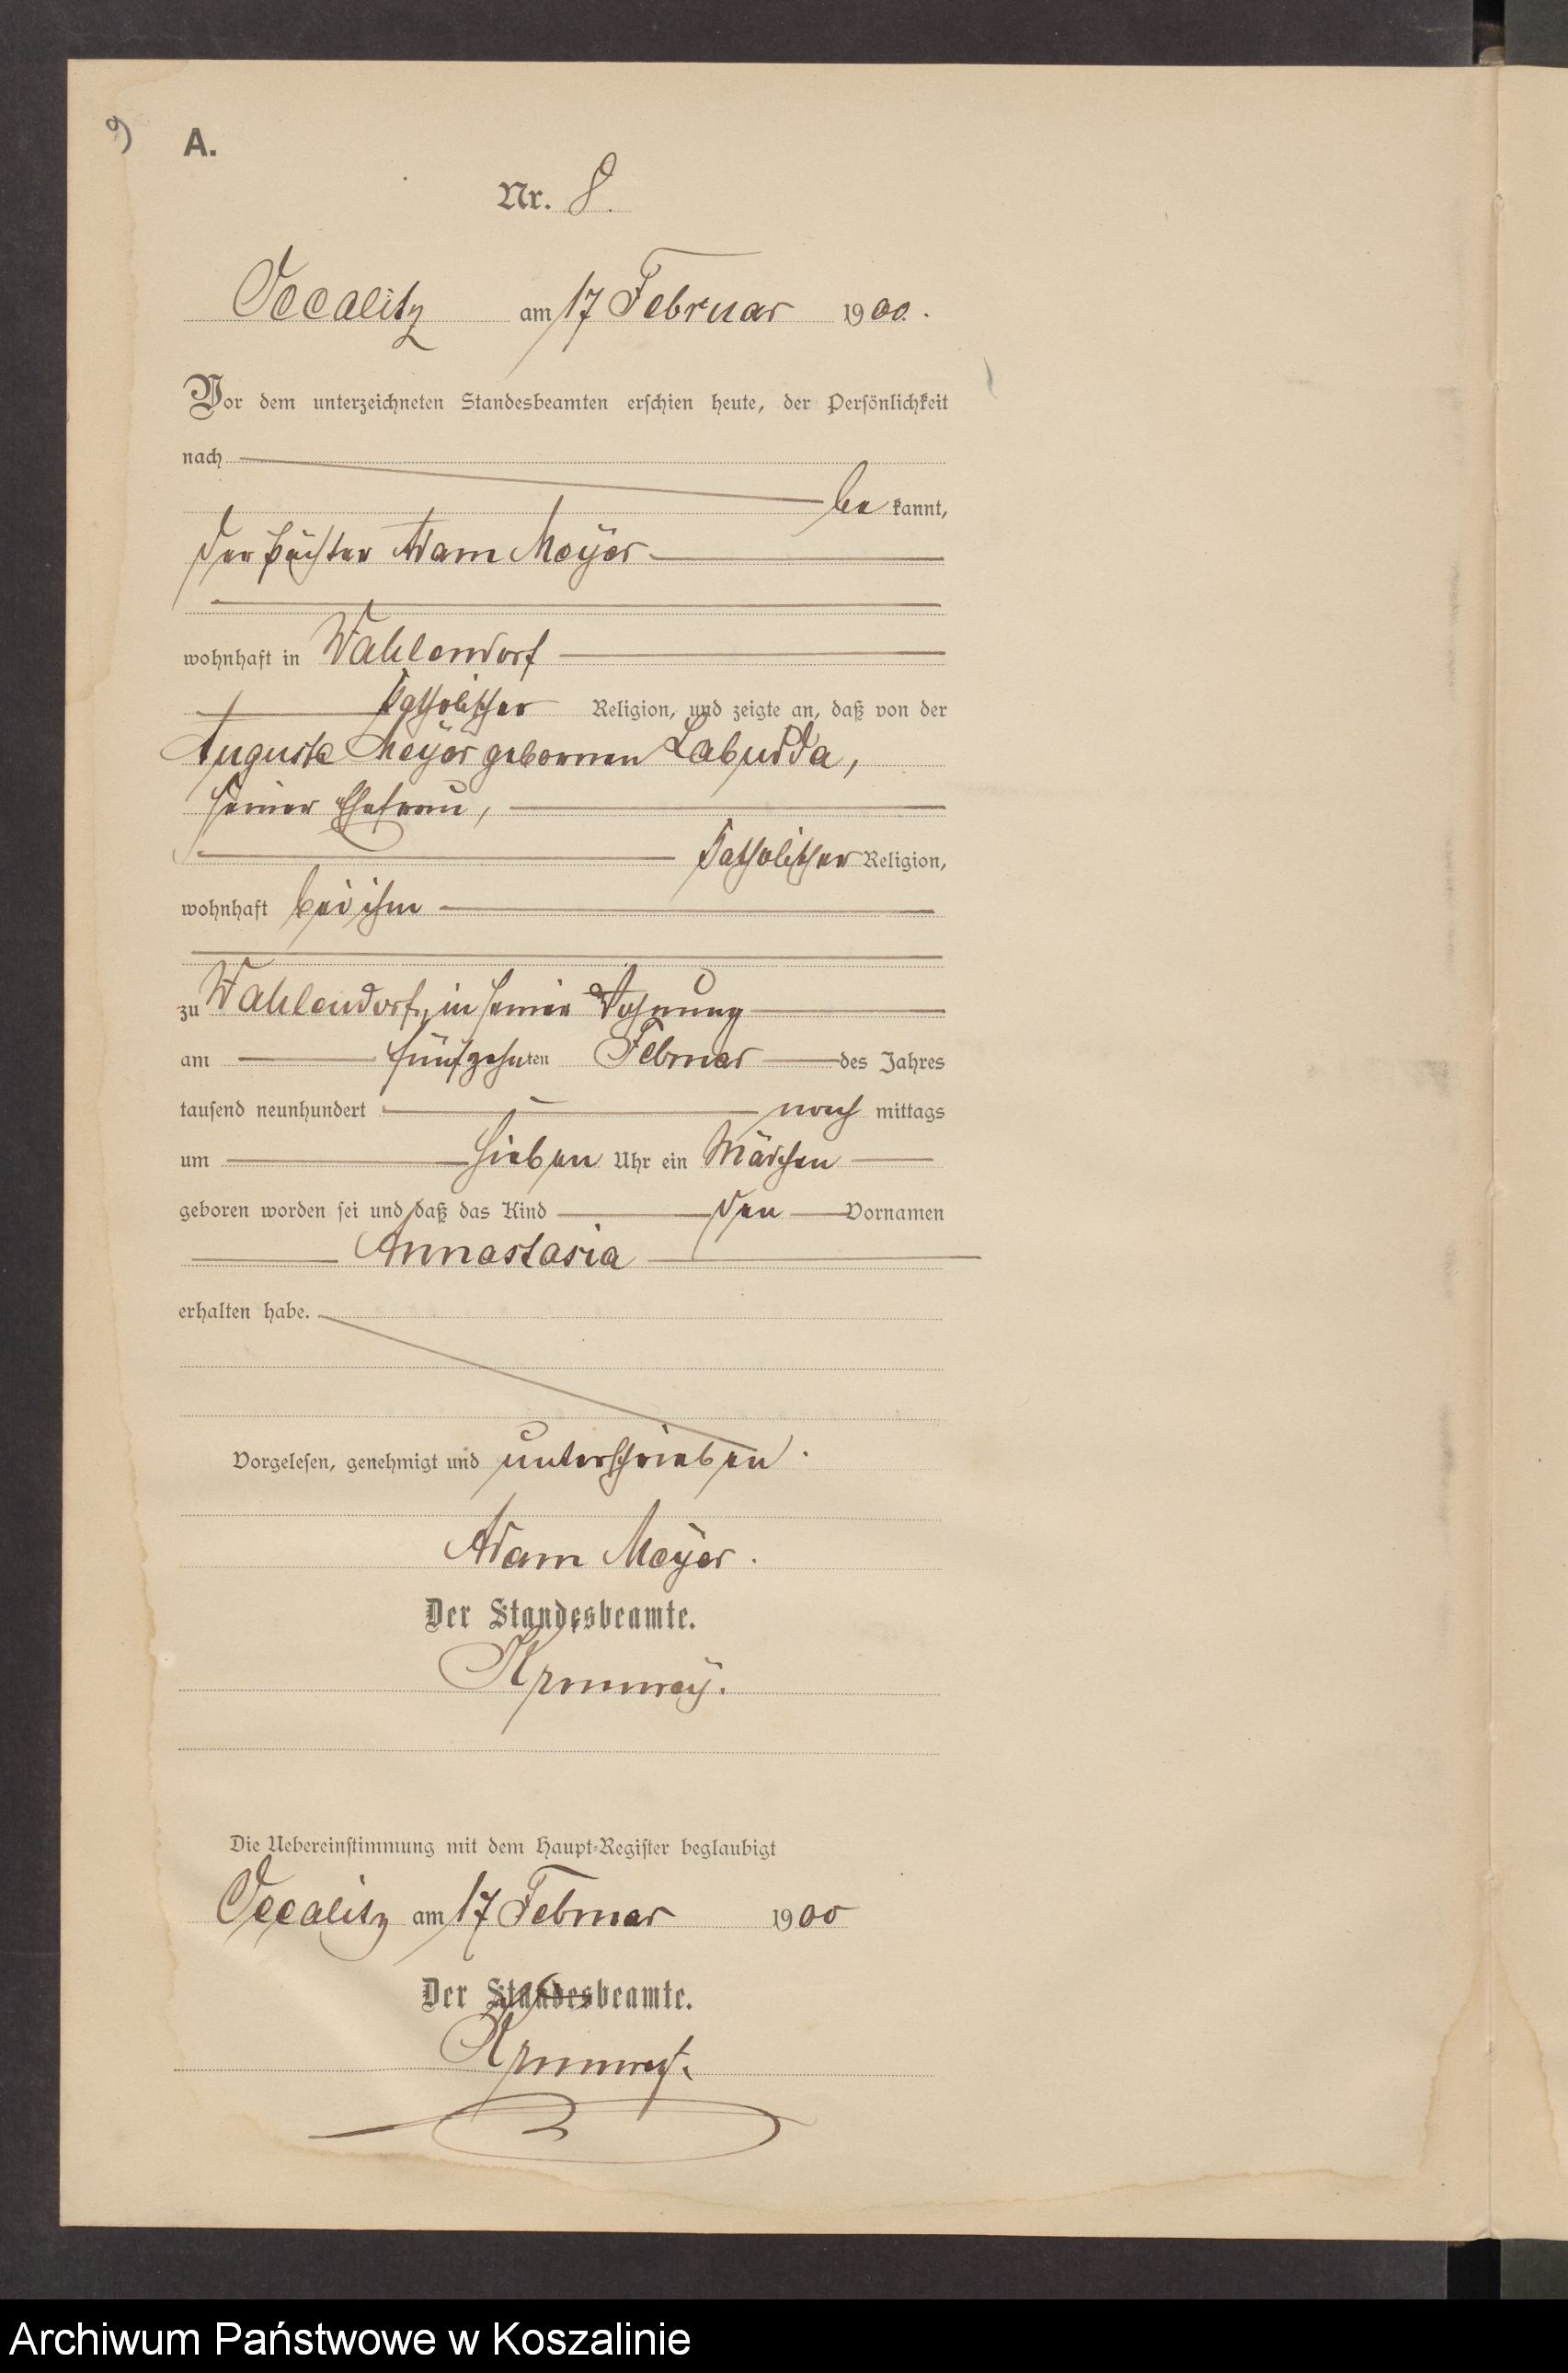 9
A.
Nr. 8.
Occalitz am 17 Februar 1900.
Vor dem unterzeichneten Standesbeamten erschien heute, der Persönlichkeit
nach
be kannt,
der Pächter Adam Meyer
wohnhaft in Wahlendorf
katholischer Religion, und zeigte an, daß von der
Auguste Meyer gebornen Labudda,
seiner Ehefrau,
katholischer Religion,
wohnhaft bei ihm
zu Wahlendorf, in seiner Wohnung
am fünfzehnten Februar des Jahres
tausend neunhundert nach mittags
um sieben Uhr ein Mädchen
geboren worden sei und daß das Kind den Vornamen
Annastasia
erhalten habe.
Vorgelesen, genehmigt und unterschrieben.
Adam Meyer.
Der Standesbeamte.
Die Uebereinstimmung mit dem Haupt-Register beglaubigt
Occalitz am 17 Februar 1900
Der Standesbeamte.
Archiwum Państwowe w Koszalinie